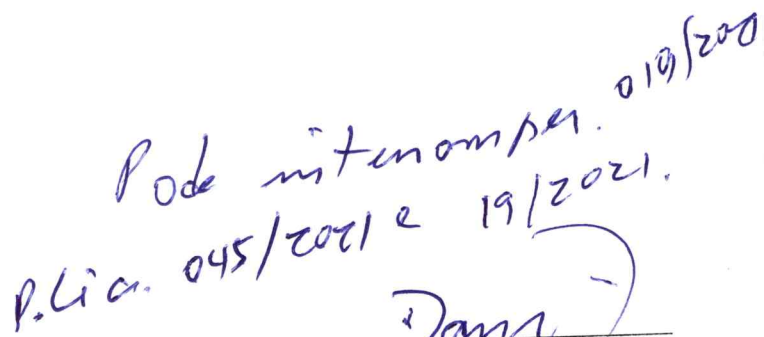 Pode interromper. 019/202
P.Lia. 045/2021 e 19/2021.